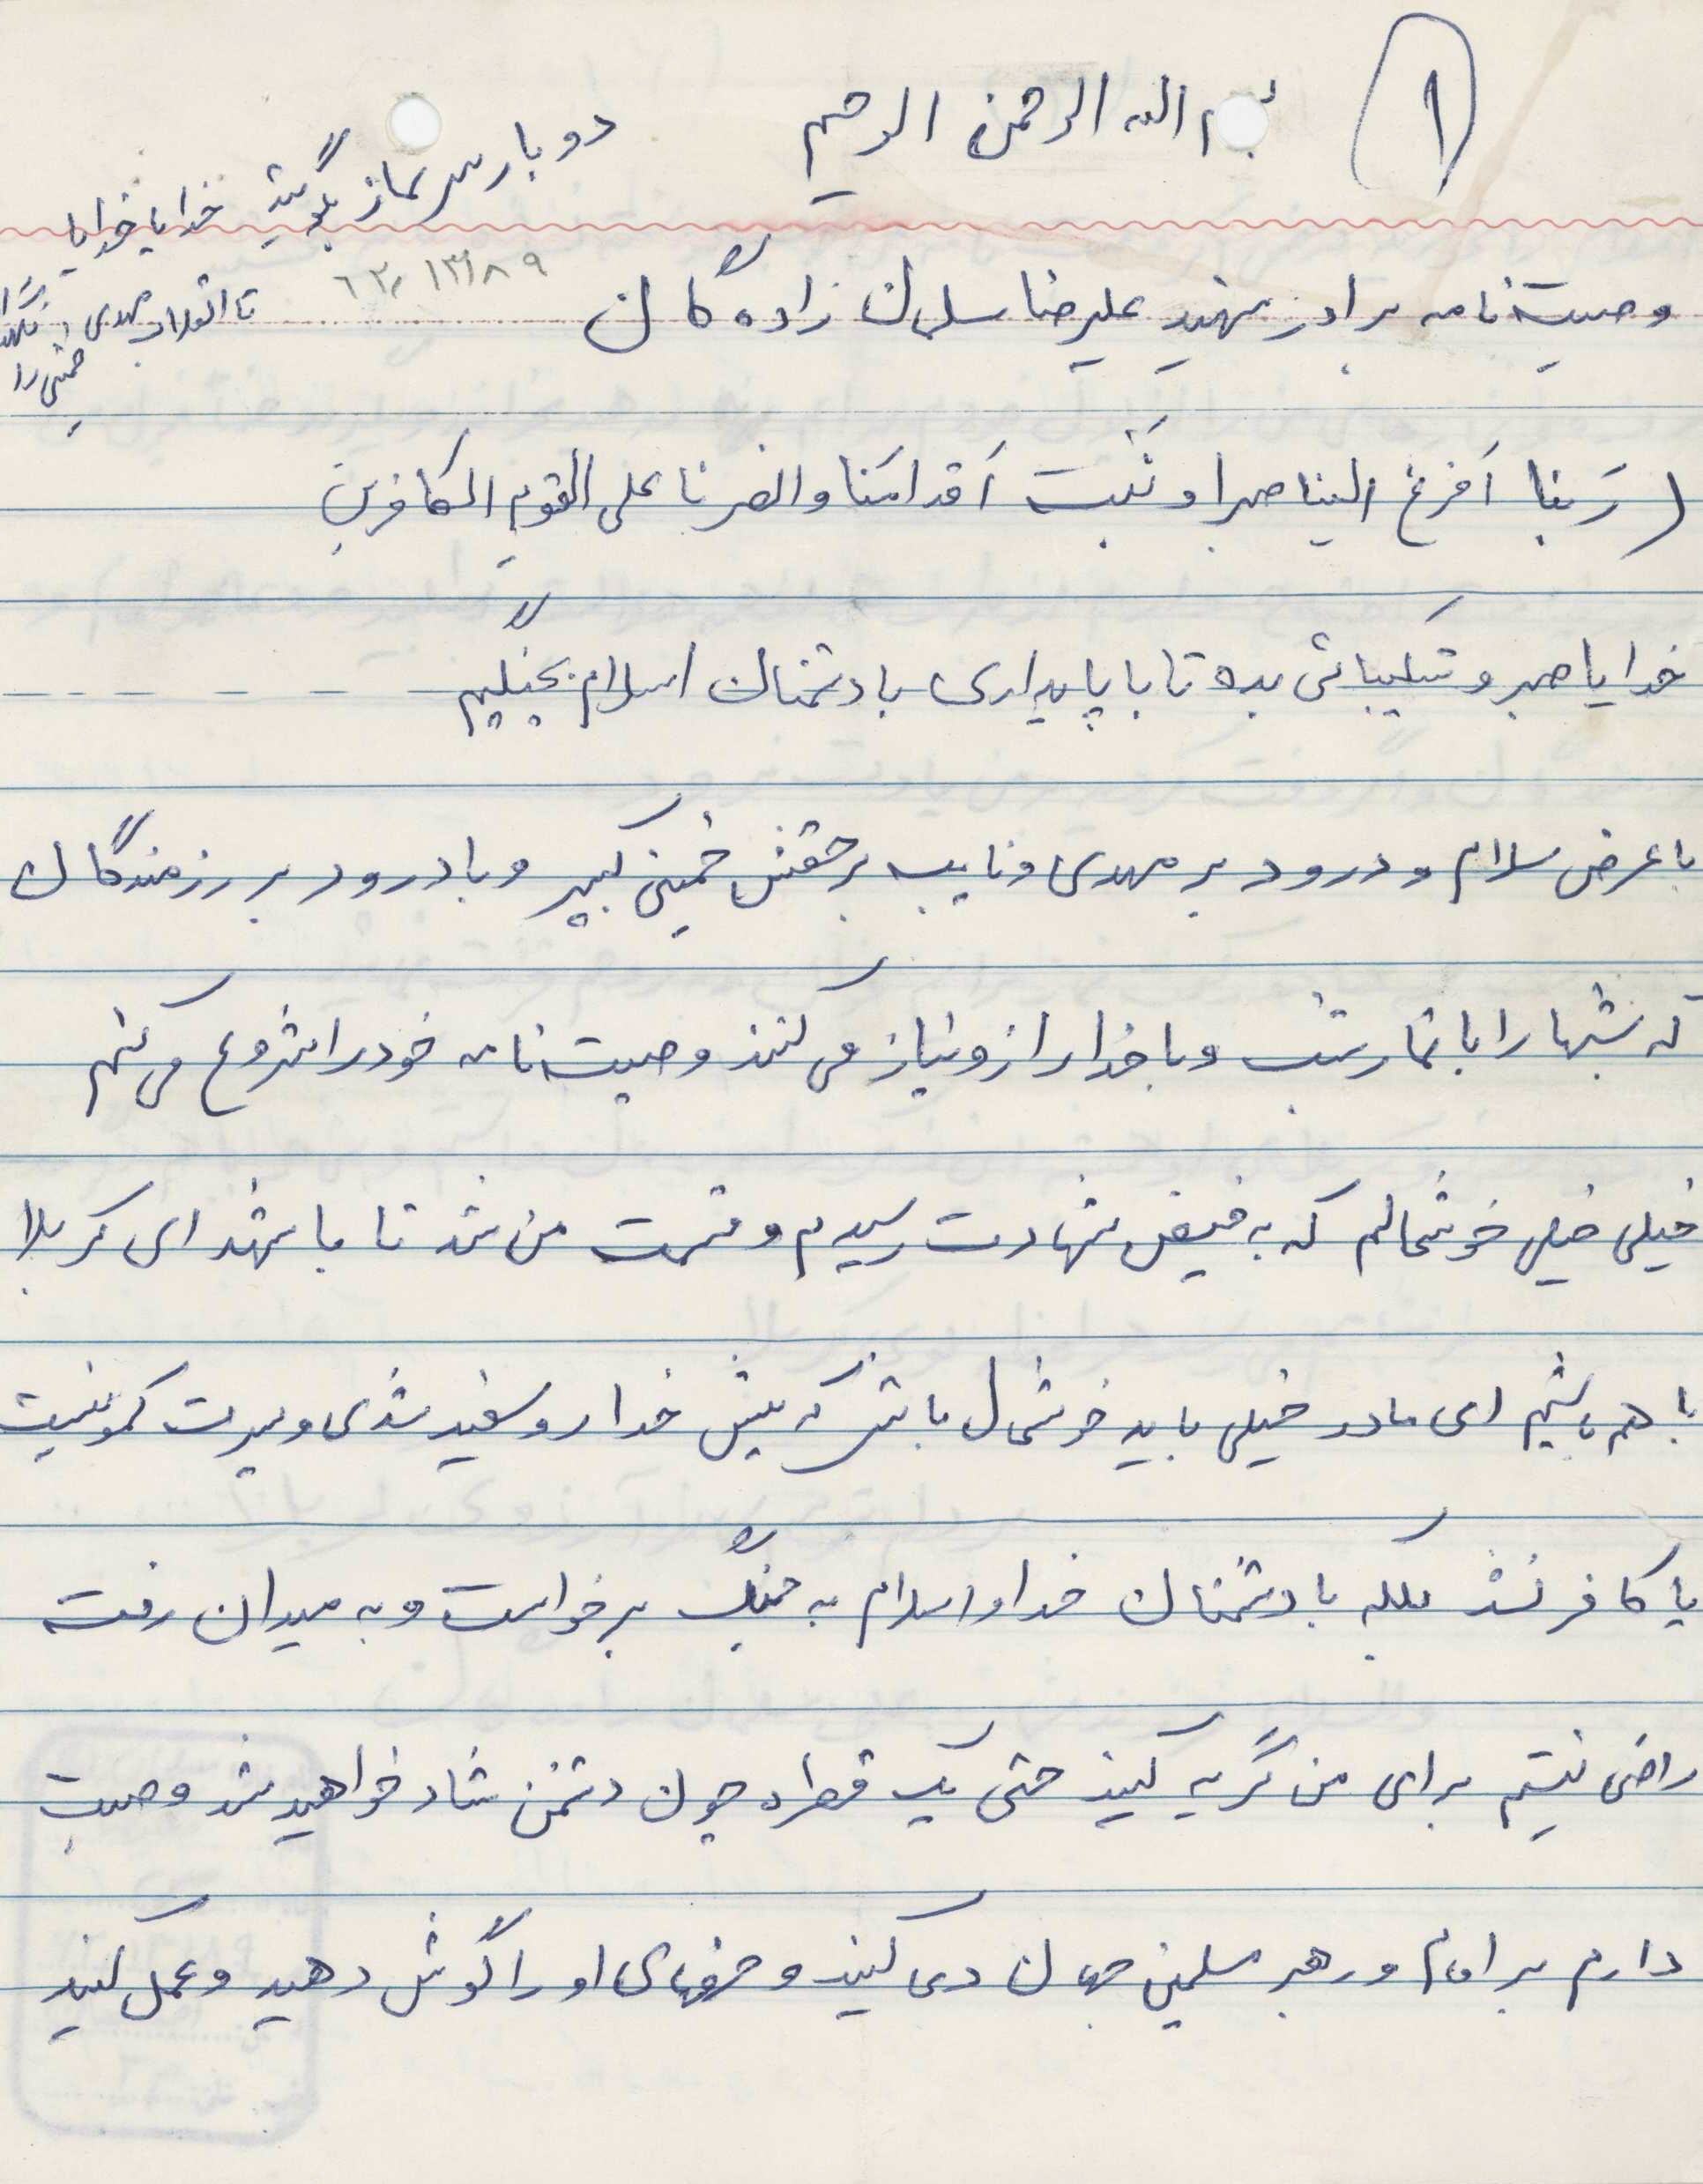 ۱
بسم الله الرحمن الرحیم
دوبار سر نماز بگوئید خدایا خدایا
تا انقلاب مهدی خمینی را نگهدار
وصیت‌نامه برادر شهید علیرضا سلمان زاده گان
(رَبنا اَفرغ الینا صبرا و ثَبت اَقدامَنا والنصرنا علی القوم الکافرین
خدایا صبر و شکیبائی بده تا با پایداری با دشمنان اسلام بجنگیم
با عرض سلام و درود بر مهدی و نایب برحقش خمینی کبیر و با درود بر رزمندگان
که شبها را با نماز شب و با خدا راز و نیاز می کنند وصیت‌نامه خود را شروع می کنم
خیلی خیلی خوشحالم که به فیض شهادت رسیدم و قسمت من شد تا با شهدای کربلا
با هم باشیم ای مادر خیلی باید خوشحال باشی که پیش خدا رو سفید شدی و پسرت کمونیست
یا کافر نشد بلکه با دشمنان خدا و اسلام به جنگ برخواست و به میدان رفت
راضی نیستم برای من گریه کنید حتی یک قطره چون دشمن شاد خواهید شد وصیت
دارم بر امام و رهبر مسلمین جهان دعا کنید و حرفهای او را گوش دهید و عمل کنید